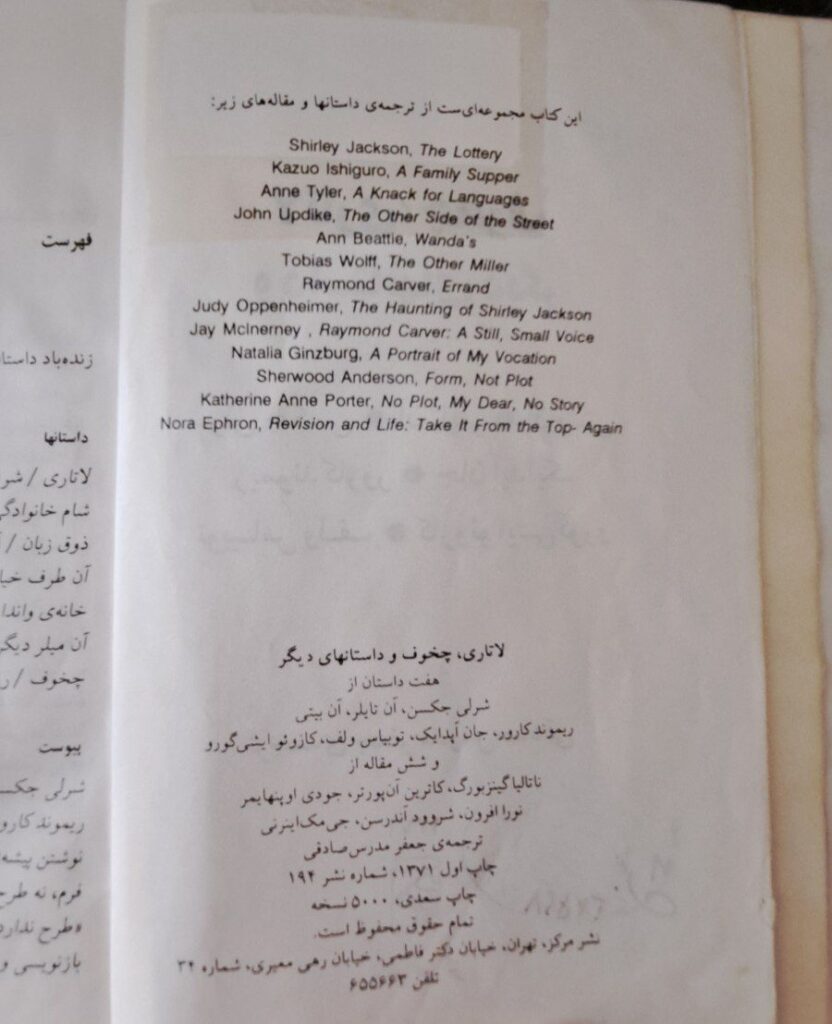 این کتاب مجموعه‌ای‌ست از ترجمه‌ی داستانها و مقاله‌های زیر:
Shirley Jackson, The Lottery
Kazuo Ishiguro, A Family Supper
Anne Tyler, A Knack for Languages
John Updike, The Other Side of the Street
Ann Beattie, Wanda's
Tobias Wolff, The Other Miller
Raymond Carver, Errand
Judy Oppenheimer, The Haunting of Shirley Jackson
Jay McInerney , Raymond Carver: A Still, Small Voice
Natalia Ginzburg, A Portrait of My Vocation
Sherwood Anderson, Form, Not Plot
Katherine Anne Porter, No Plot, My Dear, No Story
Nora Ephron, Revision and Life: Take It From the Top- Again
لاتاری، چخوف و داستانهای دیگر
هفت داستان از
شرلی جکسن، آن تایلر، آن بیتی
ریموند کارور، جان آپدایک، توبیاس ولف، کازوئو ایشی‌گورو
و شش مقاله از
ناتالیا گینزبورگ، کاترین آن‌پورتر، جودی اوپنهایمر
نورا افرون، شروود آندرسن، جی‌مک‌اینرنی
ترجمه‌ی جعفر مدرس‌صادقی
چاپ اول ۱۳۷۱، شماره نشر ۱۹۴
چاپ سعدی، ۵۰۰۰ نسخه
تمام حقوق محفوظ است.
نشر مرکز، تهران، خیابان دکتر فاطمی، خیابان رهی معیری، شماره ۳۴
تلفن ۶۵۵۶۶۳
فهرست
زنده‌باد
داستانها
لاتاری /
شام خانوادگی
ذوق زبان /
آن طرف
خانه‌ی واندا
آن میلر
چخوف /
پیوست
شرلی
ریموند
نوشتن
فرم، نه طرح
«طرح
بازنویسی و